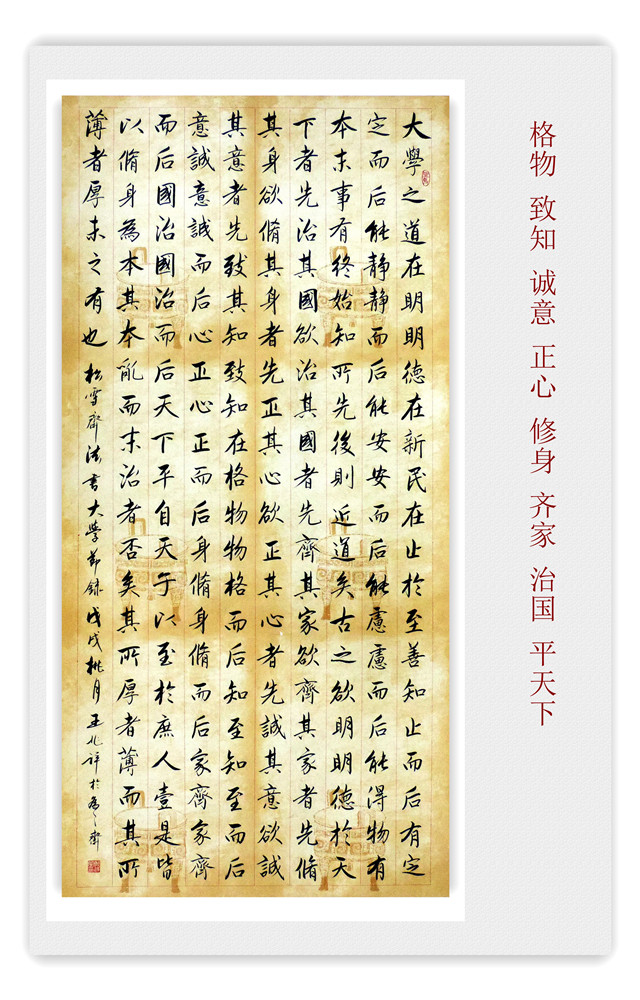 格物 致知 诚意 正心 修身 齐家 治国 平天下
大學之道在明明德在新民在止於至善知止而后有定
定而后能静静而后能安安而后能慮慮而后能得物有
本末事有終始知所先後則近道矣古之欲明明德於天
下者先治其國欲治其國者先齊其家欲齊其家者先脩
其身欲脩其身者先正其心欲正其心者先誠其意欲誠
其意者先致其知致知在格物物格而后知至知至而后
意誠意誠而后心正心正而后身脩身脩而后家齊家齊
而后國治國治而后天下平自天子以至於庶人壹是皆
以脩身為本其本亂而末治者否矣其所厚者薄而其所
薄者厚未之有也 松雪齋法書大學節録戊戌桃月王兆祥於齋